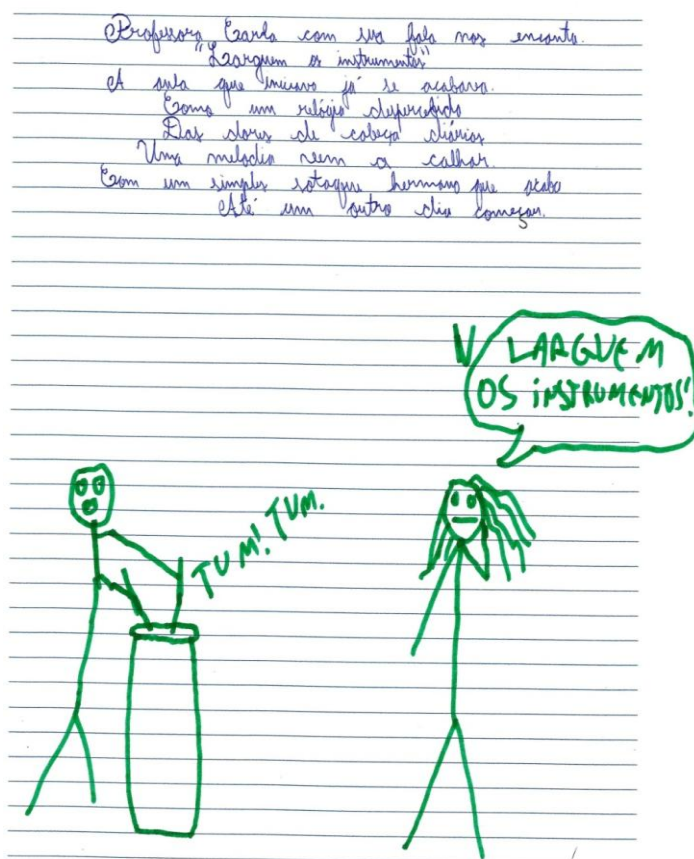 Professora Carla com sua fala nos encanta.
"Larguem os instrumentos"
A aula que iniciava já se acabava.
Como um relógio despercebido
Das dores de cabeça diárias
Uma melodia vem a calhar
Com um simples sotaque hermano que acaba
Até um outro dia começar.
LARGUEM
OS INSTRUMENTOS!
TUM! TUM.